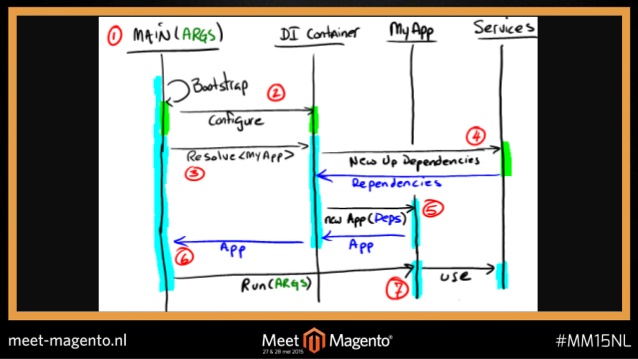 ① MAIN(ARGS) DI Container MyApp Services
Bootstrap
②
Configure
Resolve<MyApp>
③
④
New Up Dependencies
Dependencies
new App(Deps)
⑤
App
App
⑥
Run(ARGS)
⑦
use
meet-magento.nl
Meet Magento®
27 & 28 mei 2015
#MM15NL